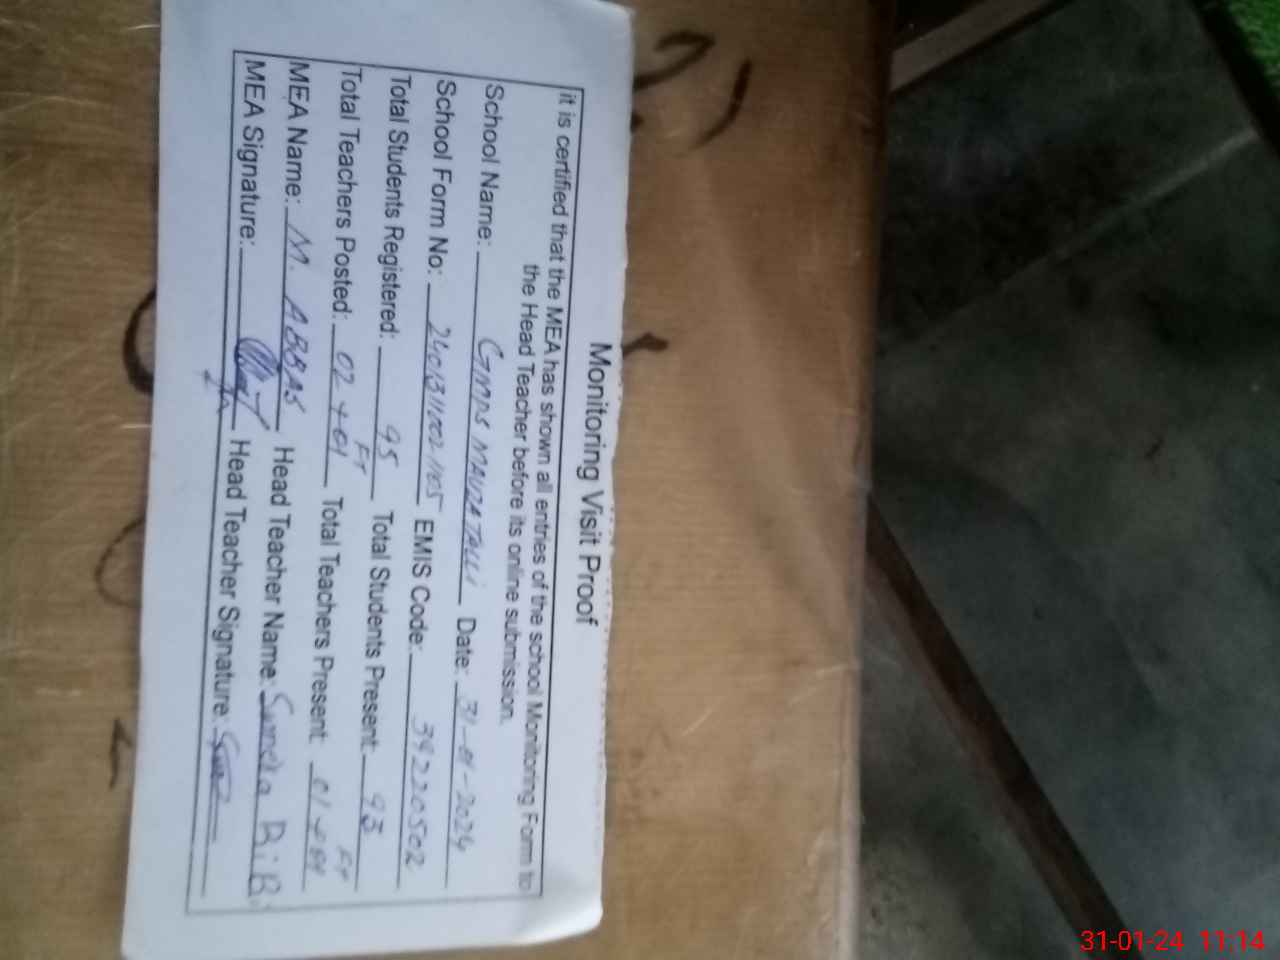 Monitoring Visit Proof
it is certified that the MEA has shown all entries of the school Monitoring Form to
the Head Teacher before its online submission.
School Name: GMPS Date: 31-01-2024
School Form No: EMIS Code: 39220502
Total Students Registered: 95 Total Students Present: 93
Total Teachers Posted: 02 + 01 FT Total Teachers Present: 01 + 01 FT
MEA Name: M. ABBAS Head Teacher Name: Sumera BiBi
MEA Signature: Head Teacher Signature:
31-01-24 11:14